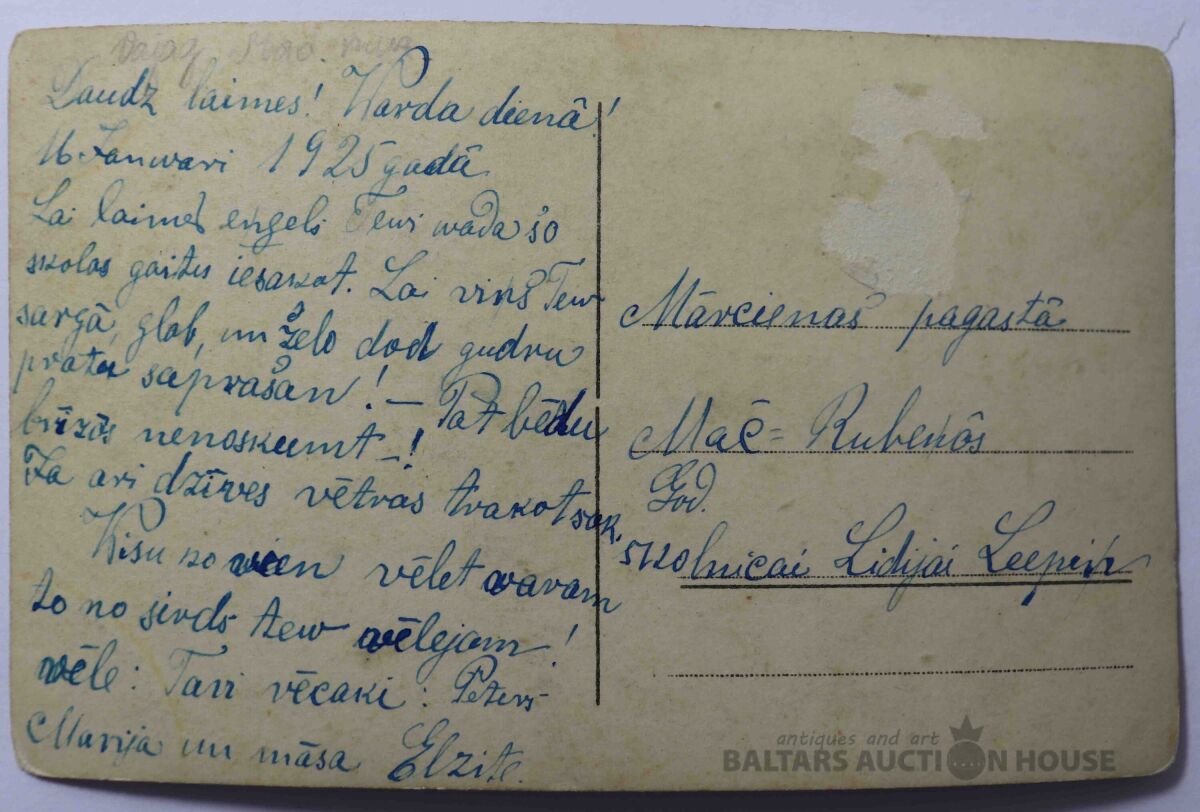 Daudz laimes! Warda dienâ!
16 Janwari 1925 gadâ
Lai laimes engeli Tewi wada šo
skolas gaitu iesakot. Lai viņš Tew
sargâ, glab, un želo dod gudru
pratu saprašan! — Pat bēdu
brīžôs nenoskumt —!
Ja ari dzīves vētras trakot sak.
Visu ko ween vēlet waram
to no sirds tew wēlejam!
wēle: Tavi vēcaki: Peters
Marija un māsa Elzite.
Mārcienas pagastâ
Māč= Rubeņôs
God.
skolnicai Lidijai Leepiņ
antiques and art
BALTARS AUCTION HOUSE